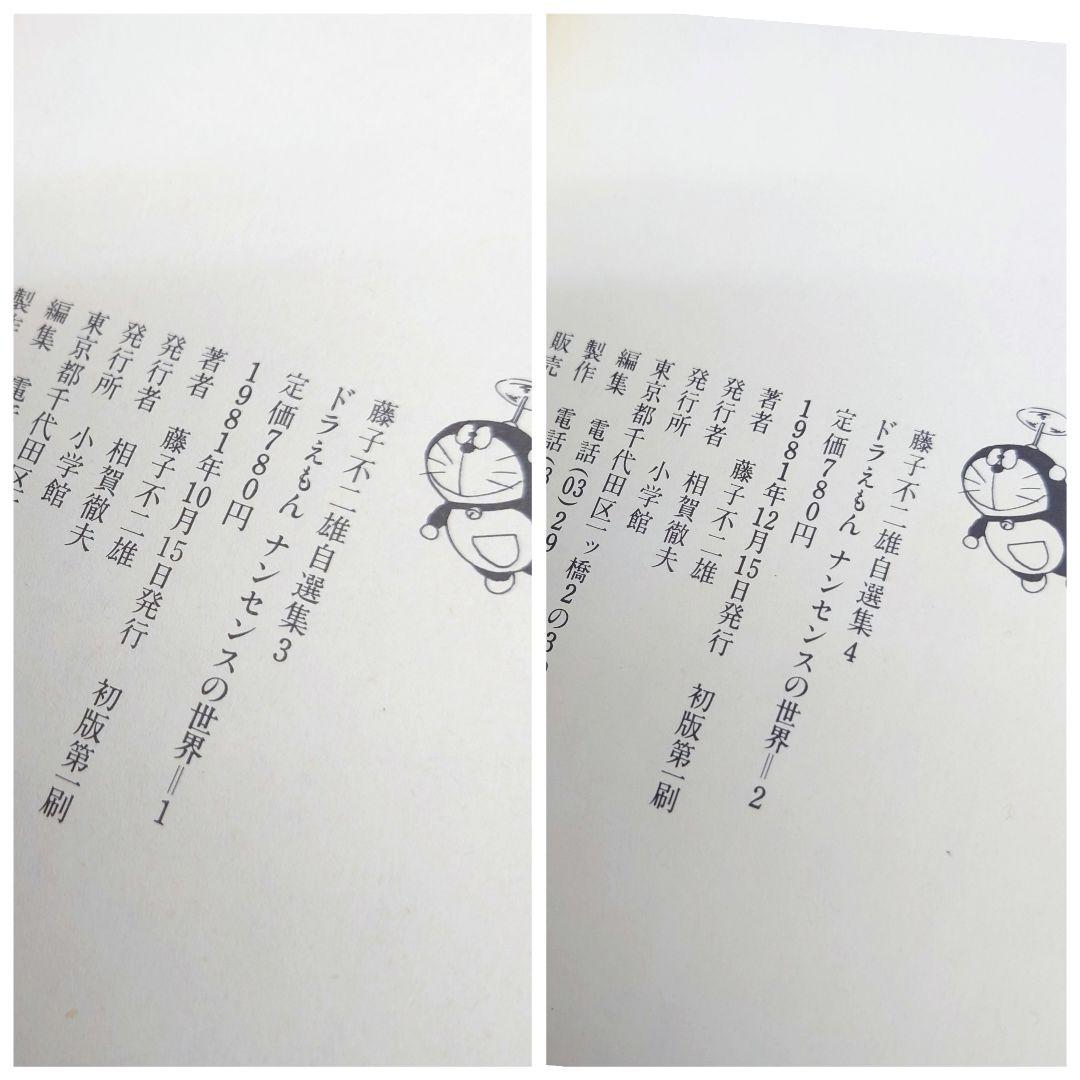 藤子不二雄自選集3
ドラえもん ナンセンスの世界=1
定価780円
1981年10月15日発行 初版第一刷
著者 藤子不二雄
発行者 相賀徹夫
発行所 小学館
東京都千代田区
編集
製作 電
藤子不二雄自選集4
ドラえもん ナンセンスの世界=2
定価780円
1981年12月15日発行 初版第一刷
著者 藤子不二雄
発行者 相賀徹夫
発行所 小学館
東京都千代田区一ッ橋2の3
編集 電話(03)29
製作 電話(
販売